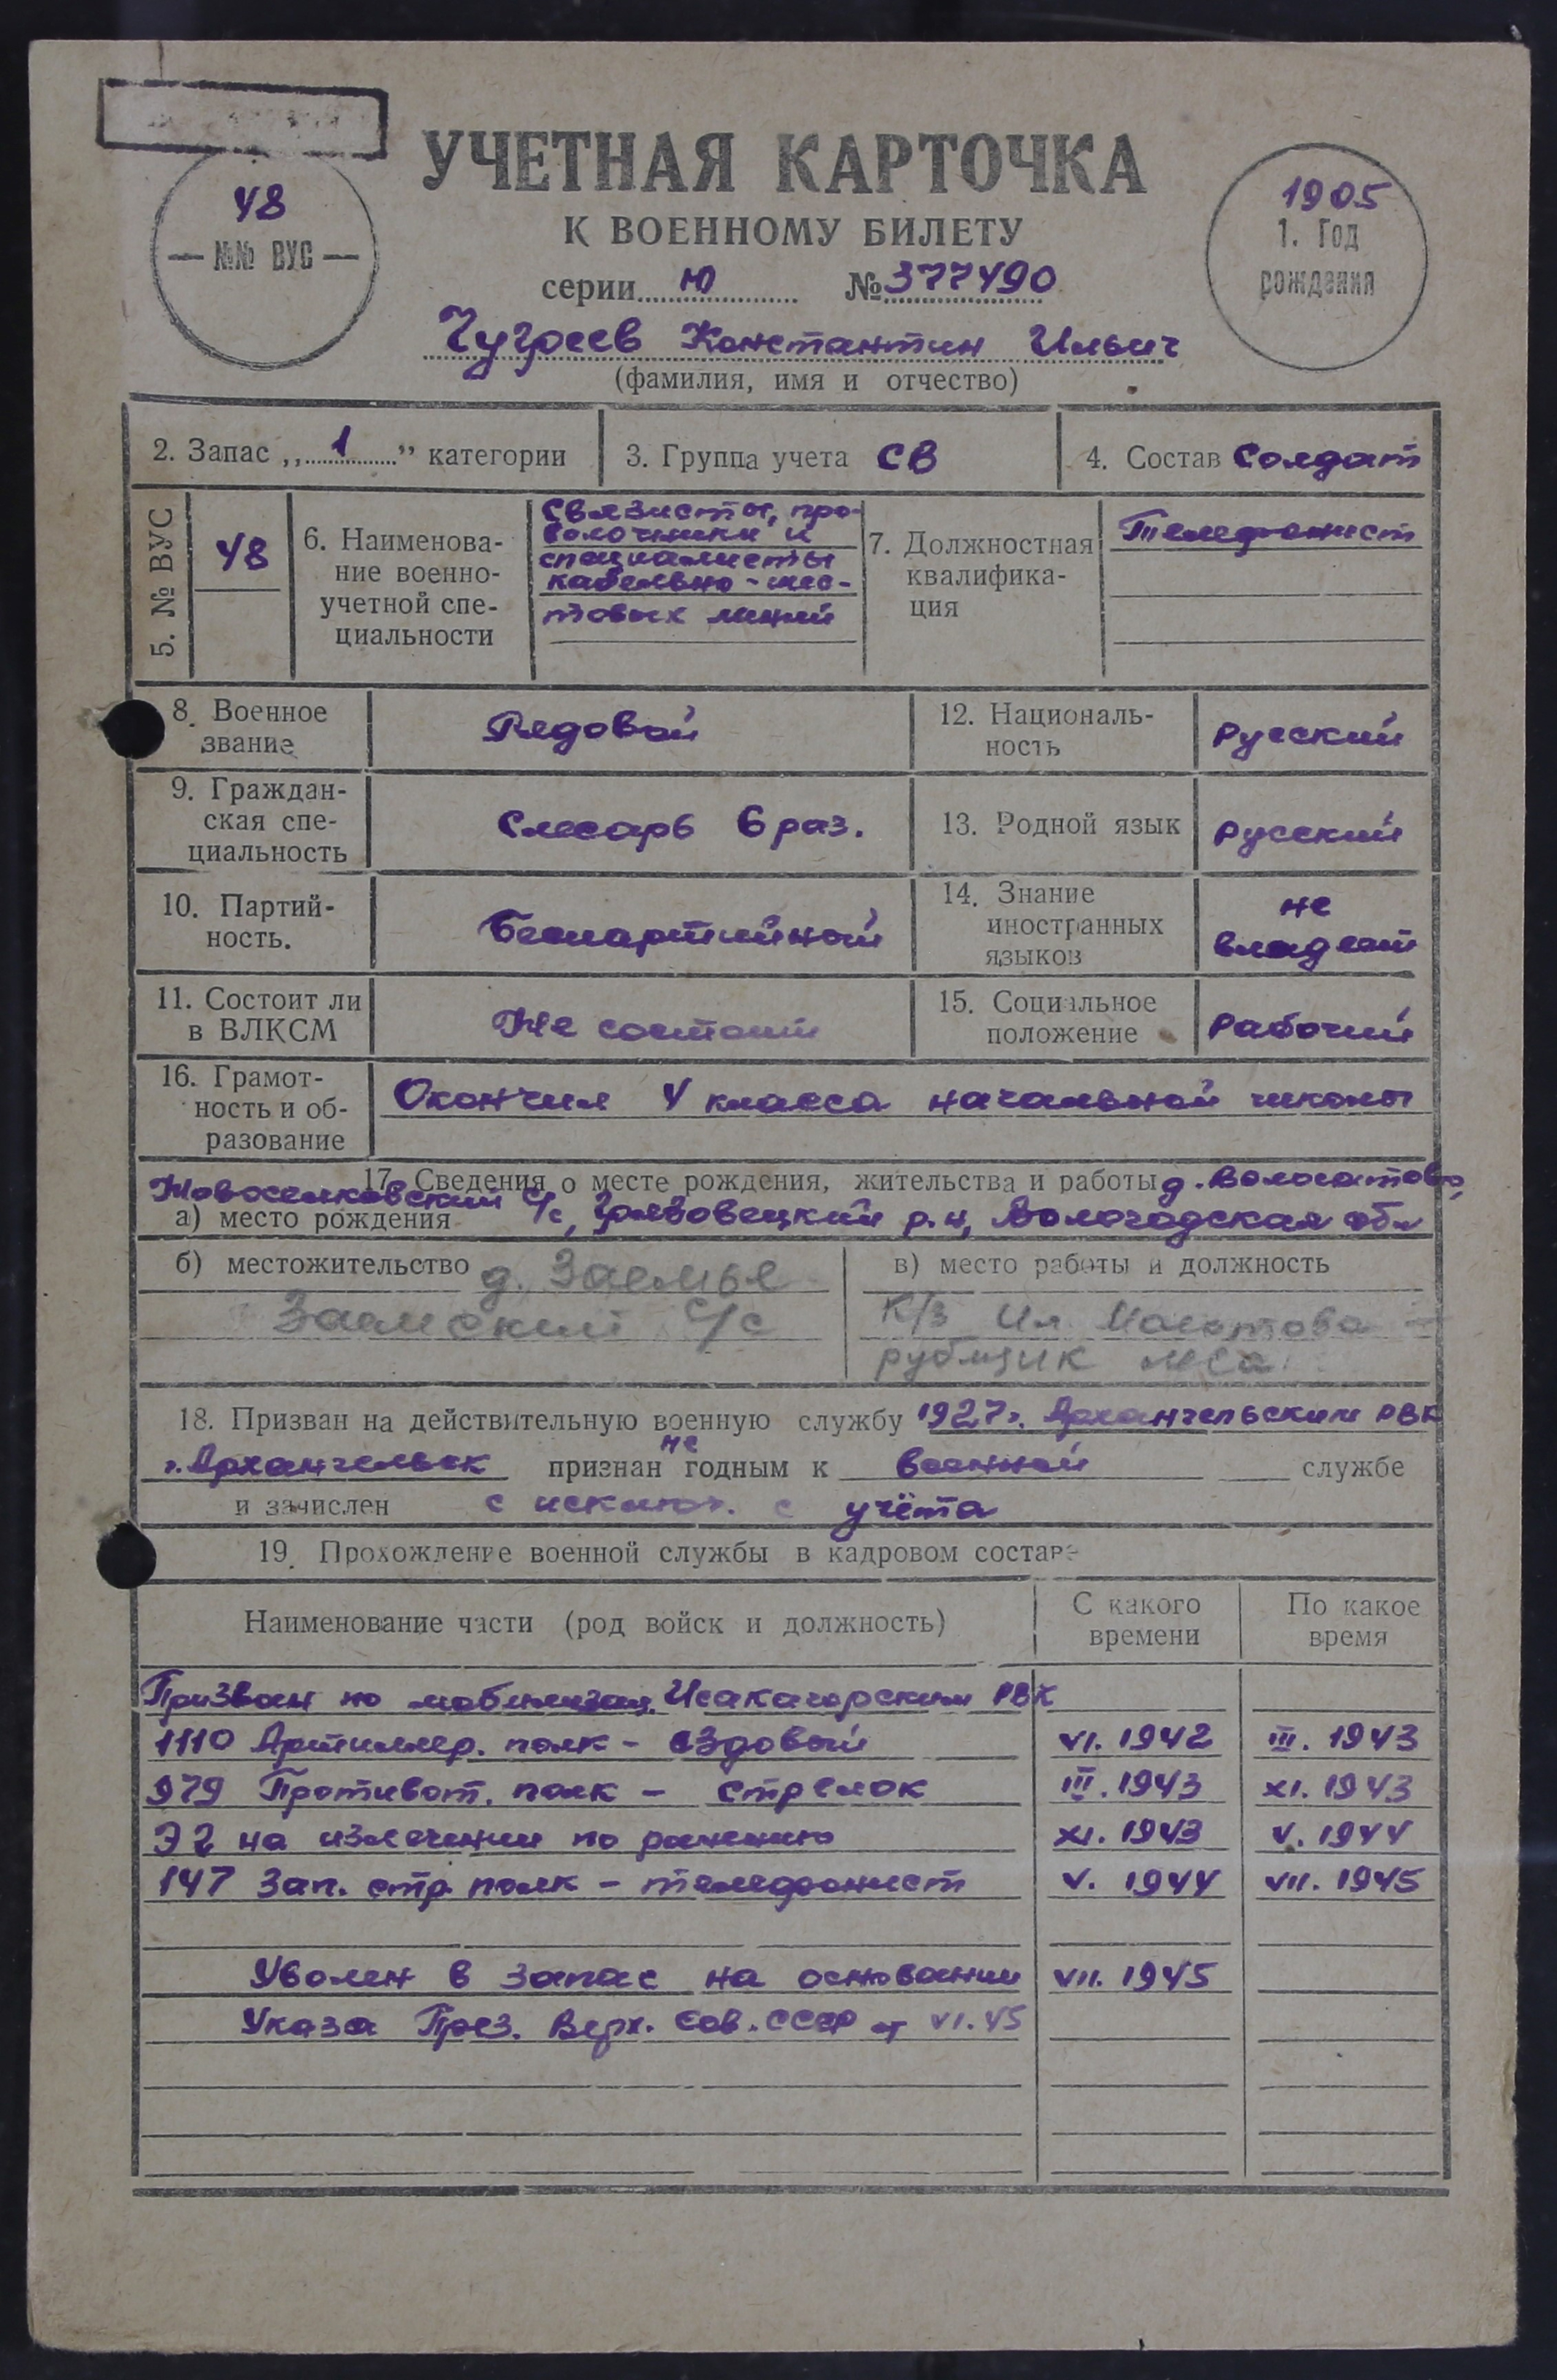 УЧЕТНАЯ КАРТОЧКА
К ВОЕННОМУ БИЛЕТУ
серии Ю № 377490
48
— №№ ВУС —
1905
1. Год
рождения
Чугреев Константин Ильич
(фамилия, имя и отчество)
2. Запас „1” категории
3. Группа учета СВ
4. Состав Солдат
5. № ВУС
48
6. Наименова-
ние военно-
учетной спе-
циальности
Связисты, про-
волочники и
специалисты
кабельно-шес-
товых линий
7. Должностная
квалифика-
ция
Телефонист
8. Военное
звание
Рядовой
12. Националь-
ность
Русский
9. Граждан-
ская спе-
циальность
Слесарь 6 раз.
13. Родной язык
Русский
10. Партий-
ность.
Беспартийный
14. Знание
иностранных
языков
не
владеет
11. Состоит ли
в ВЛКСМ
Не состоит
15. Социальное
положение
Рабочий
16. Грамот-
ность и об-
разование
Окончил 4 класса начальной школы
17. Сведения о месте рождения, жительства и работы д.
Новоселковский
а) место рождения с/с, Грязовецкий р-н, Вологодская обл
б) местожительство д. Заемье
Заемский с/с
в) место работы и должность
К/з Им Молотова
рубщик
18. Призван на действительную военную службу 1927г. Архангельским РВК
г. Архангельск признан не годным к военной службе
и зачислен с исключ. с учёта
19. Прохождение военной службы в кадровом составе
Наименование части (род войск и должность)
С какого
времени
По какое
время
Призван по мобилизац. Исакагорским РВК
1110 Артиллер. полк - ездовый VI. 1942 III. 1943
979 Противот. полк - стрелок III. 1943 XI. 1943
ЭГ на излечении по ранению XI. 1943 V. 1944
147 Зап. стр. полк - телефонист V. 1944 VII. 1945
Уволен в запас на основании VII. 1945
Указа През. Верх. Сов. СССР от VI.45